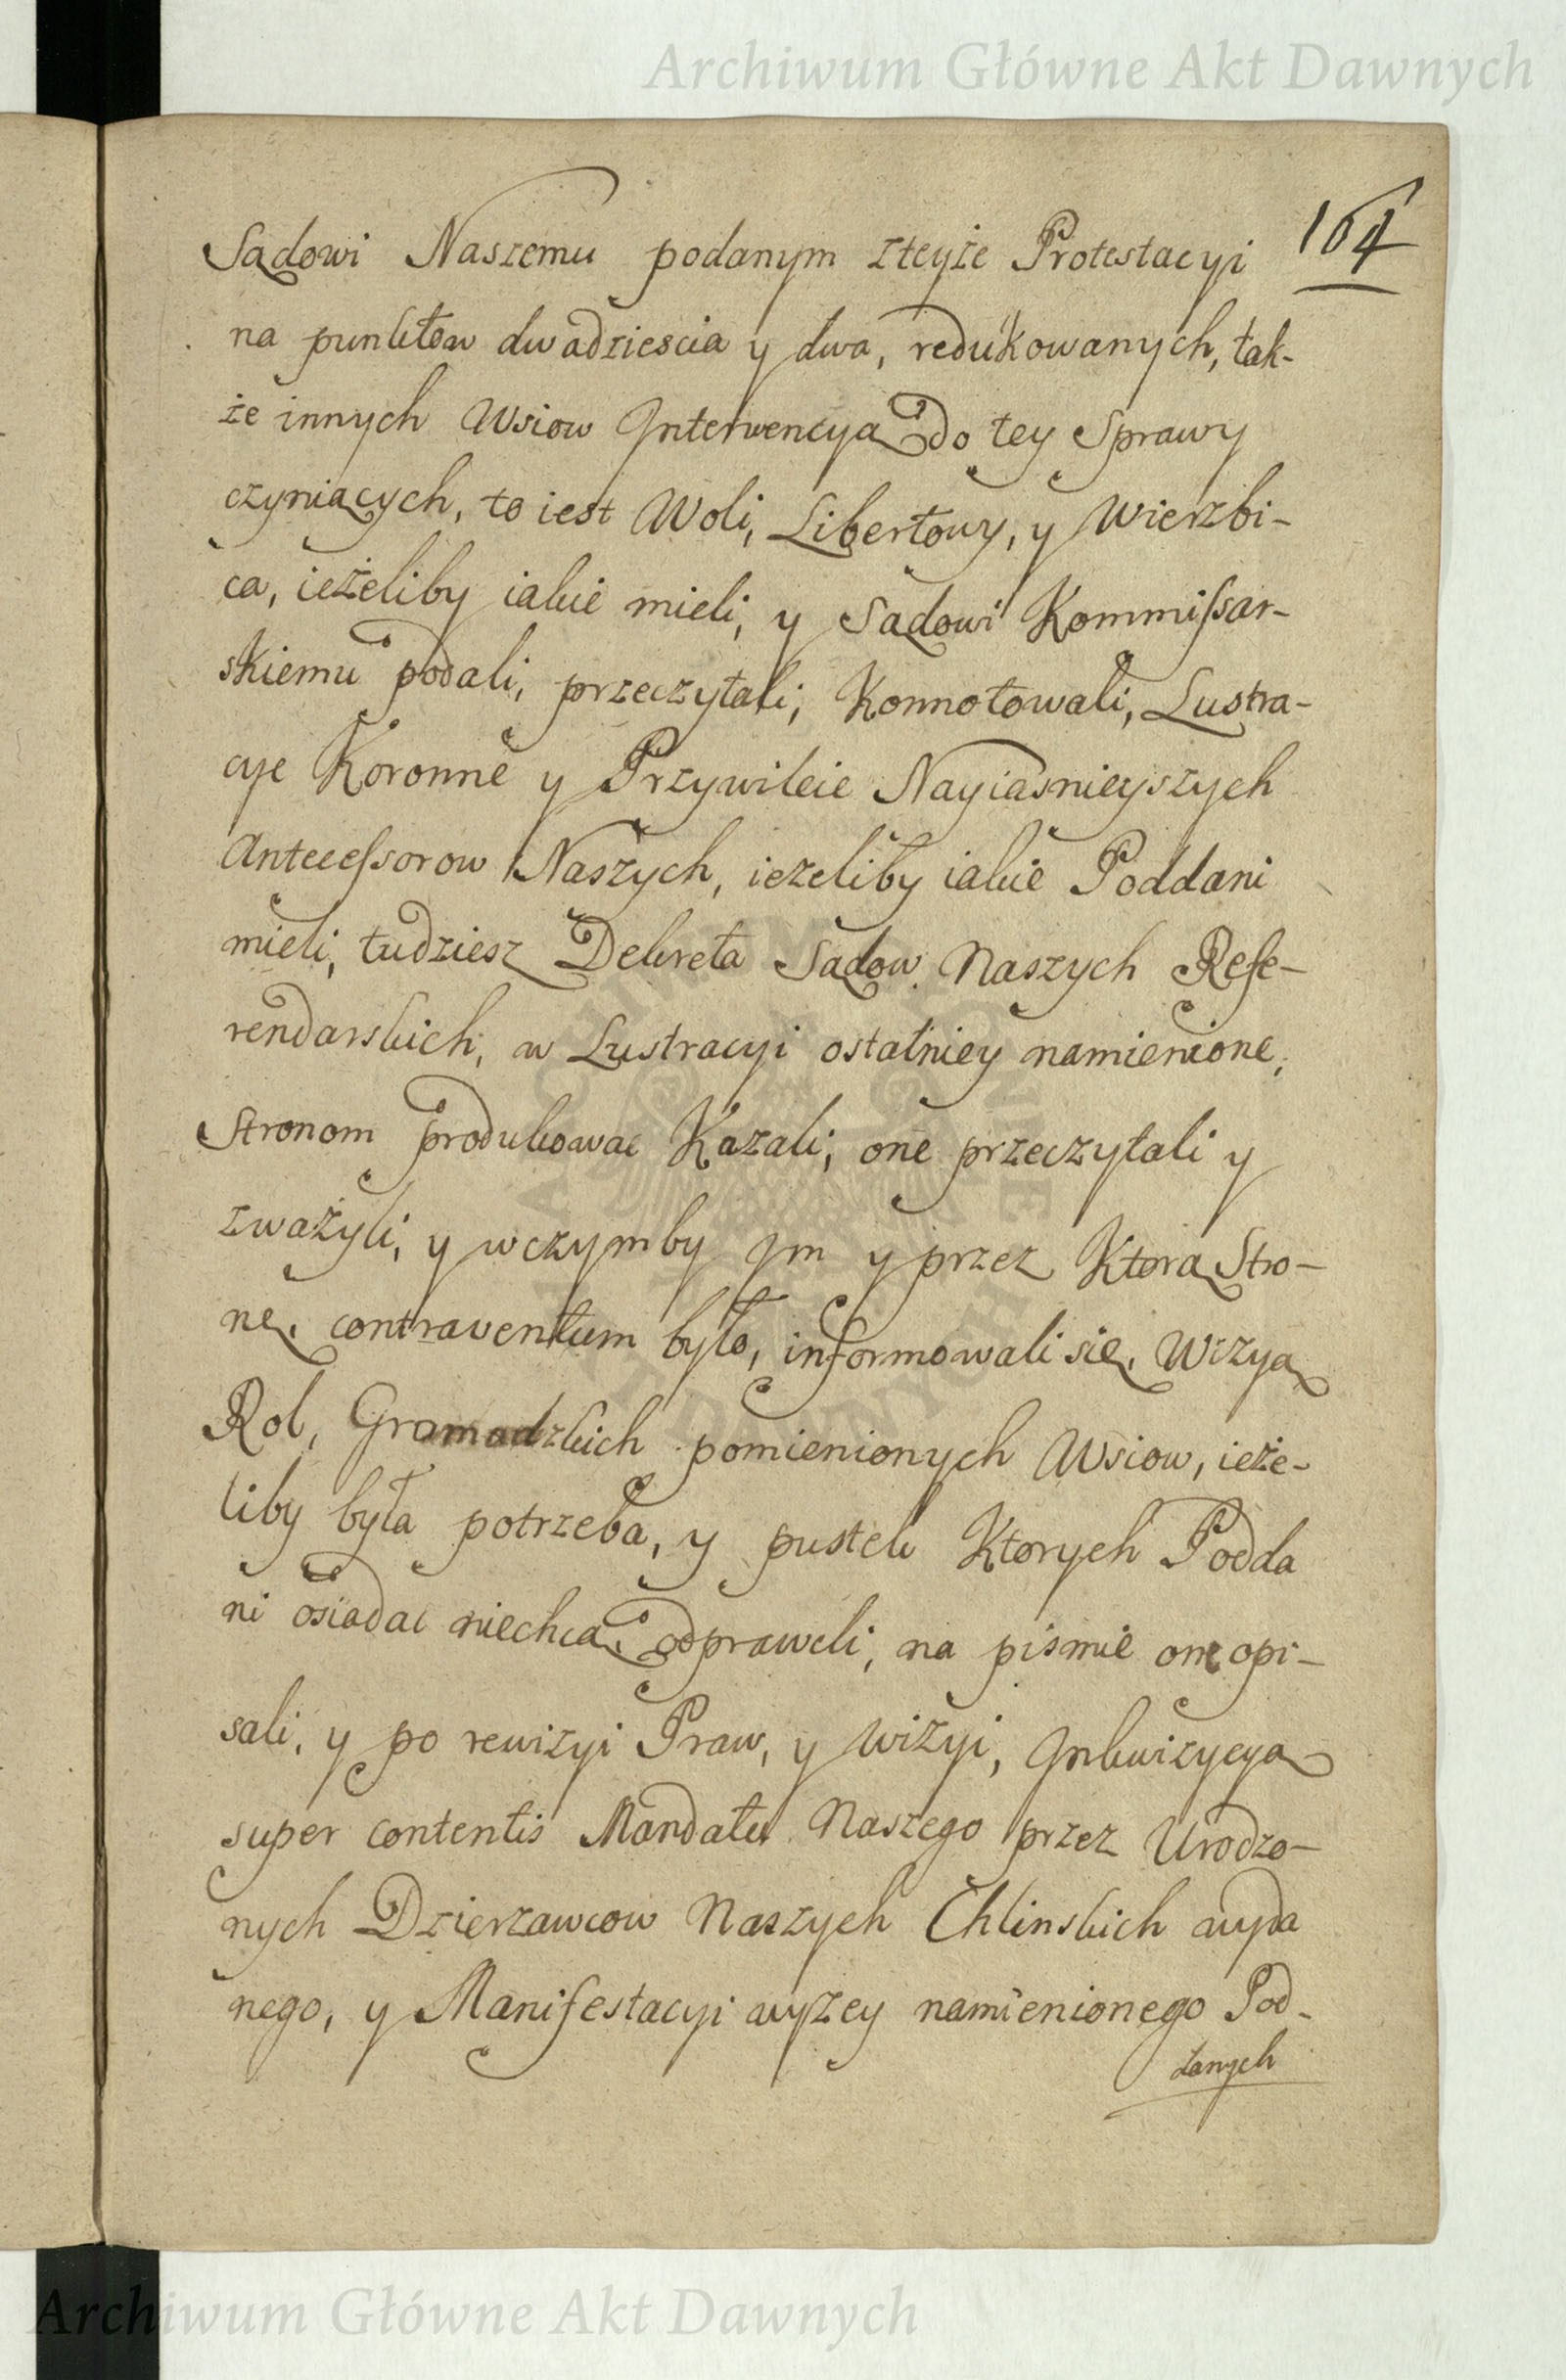 Archiwum Główne Akt Dawnych
164
Sądowi Naszemu podanym zteyże Protestacyi
na punktow dwadziescia y dwa, redukowanych, tak-
że innych Wsiow Interwencyą do tey Sprawy
czyniących, to iest Woli, Libertowy, y Wierzbi-
ca, ieżeliby iakie mieli, y Sądowi Kommissar-
skiemu podali, przeczytali, Konnotowali, Lustra-
cye Koronne y Przywileie Nayiasnieyszych
Antecessorow Naszych, ieżeliby iakie Poddani
mieli, tudziesz Dekreta Sądow Naszych Refe-
rendarskich, w Lustracyi ostatniey namienione,
Stronom produkowac Kazali, one przeczytali y
zważyli, y wczymby Im y przez Ktorą Stro-
nę, contraventum było, informowali się, Wizyą
Rol, Gromadzkich pomienionych Wsiow, ieże-
liby była potrzeba, y pustek Ktorych Podda
ni osiadac niechcą, odprawili, na pismie one opi-
sali, y po rewizyi Praw, y Wizyi, Inkwizycyą
super contentis Mandatu Naszego przez Urodzo-
nych Dzierzawcow Naszych Chlinskich wyda
nego, y Manifestacyi wyzey namienionego Pod-
danych
Archiwum Główne Akt Dawnych